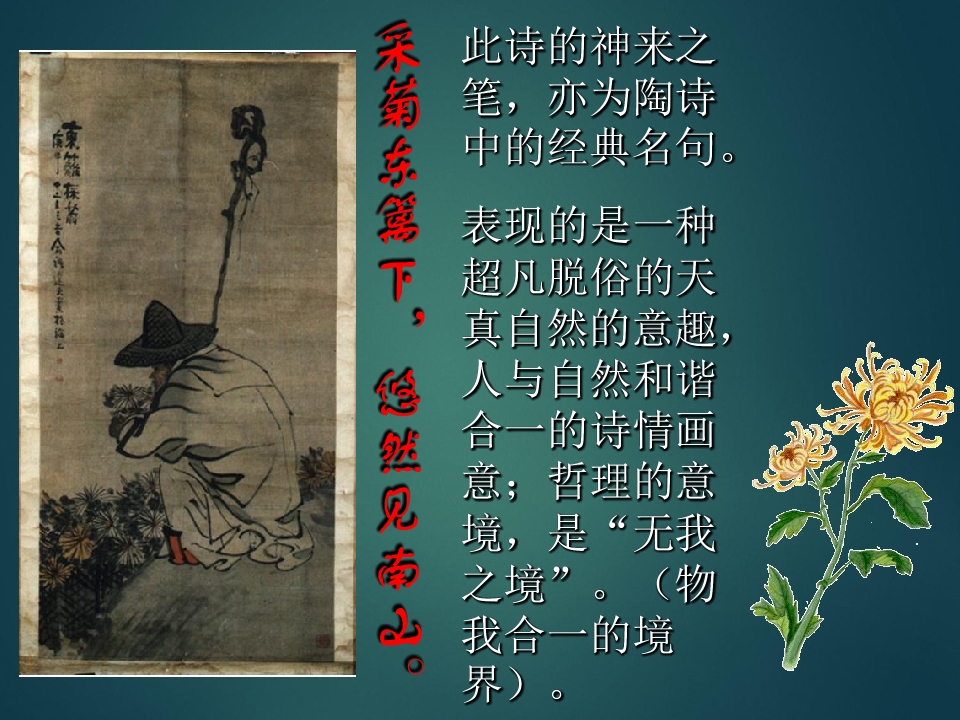 東籬採菊
采菊东篱下，悠然见南山。
此诗的神来之
笔，亦为陶诗
中的经典名句。
表现的是一种
超凡脱俗的天
真自然的意趣，
人与自然和谐
合一的诗情画
意；哲理的意
境，是“无我
之境”。（物
我合一的境
界）。